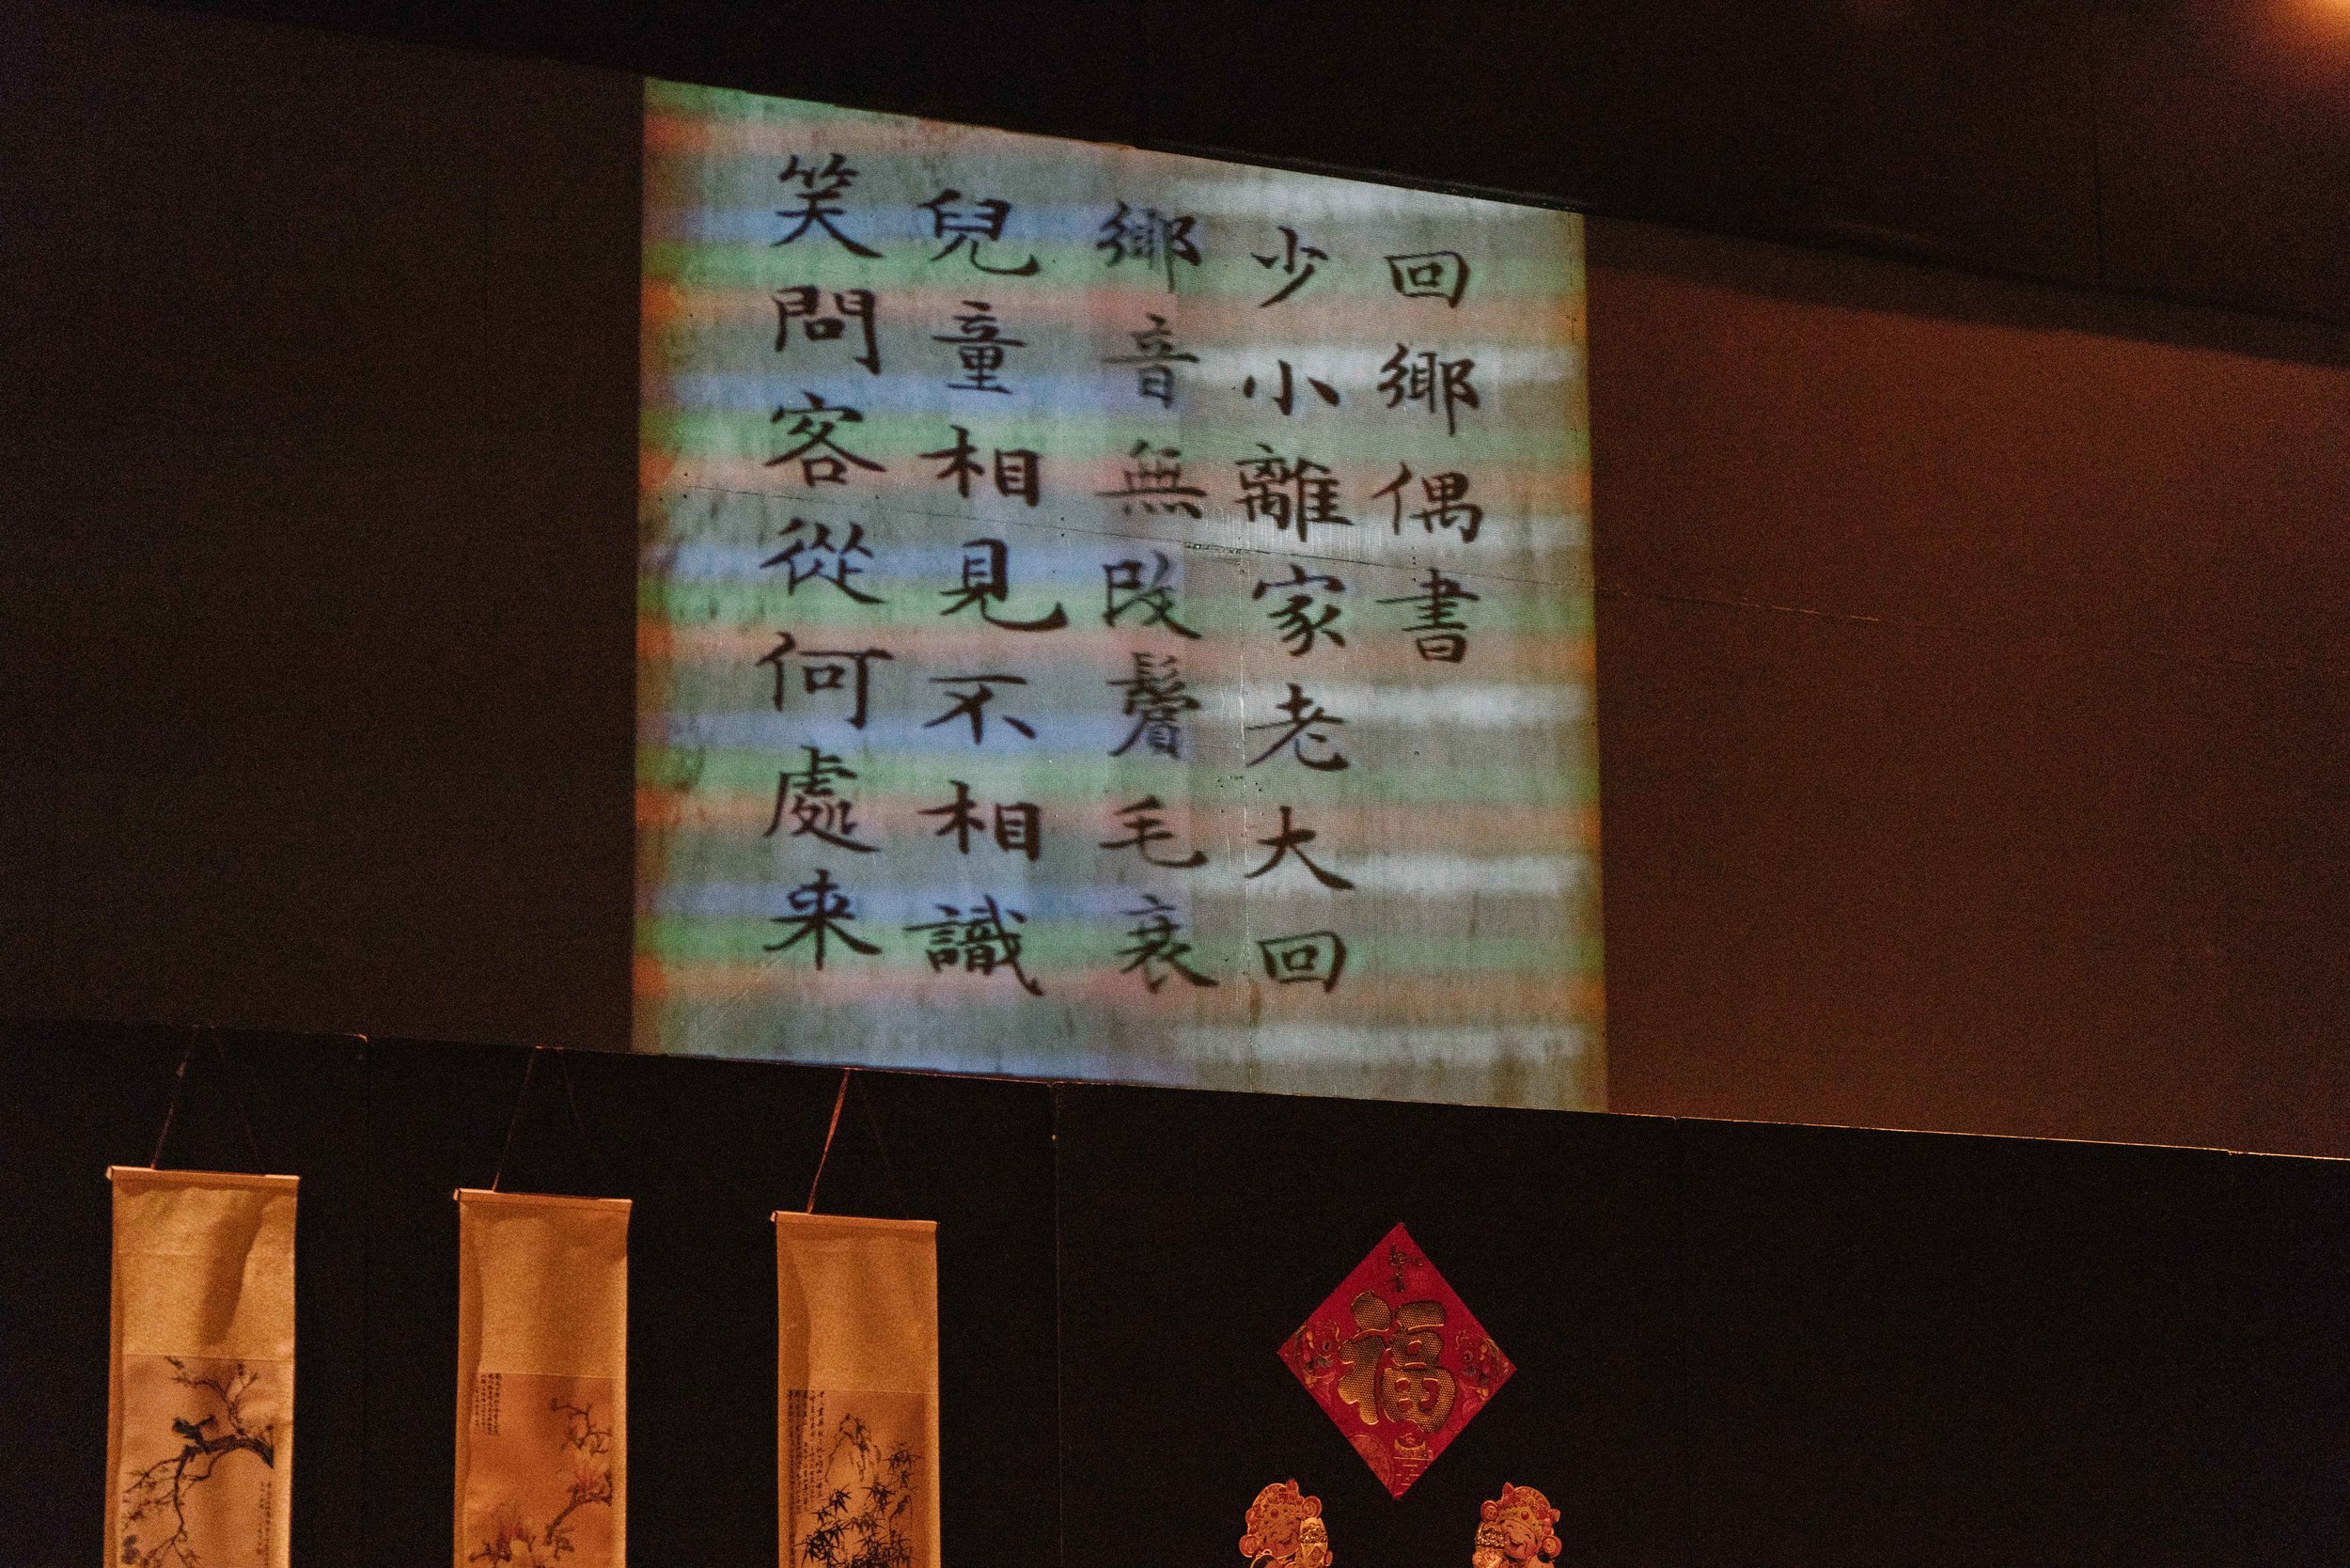 回鄉偶書
少小離家老大回
鄉音無改鬢毛衰
兒童相見不相識
笑問客從何處来
福